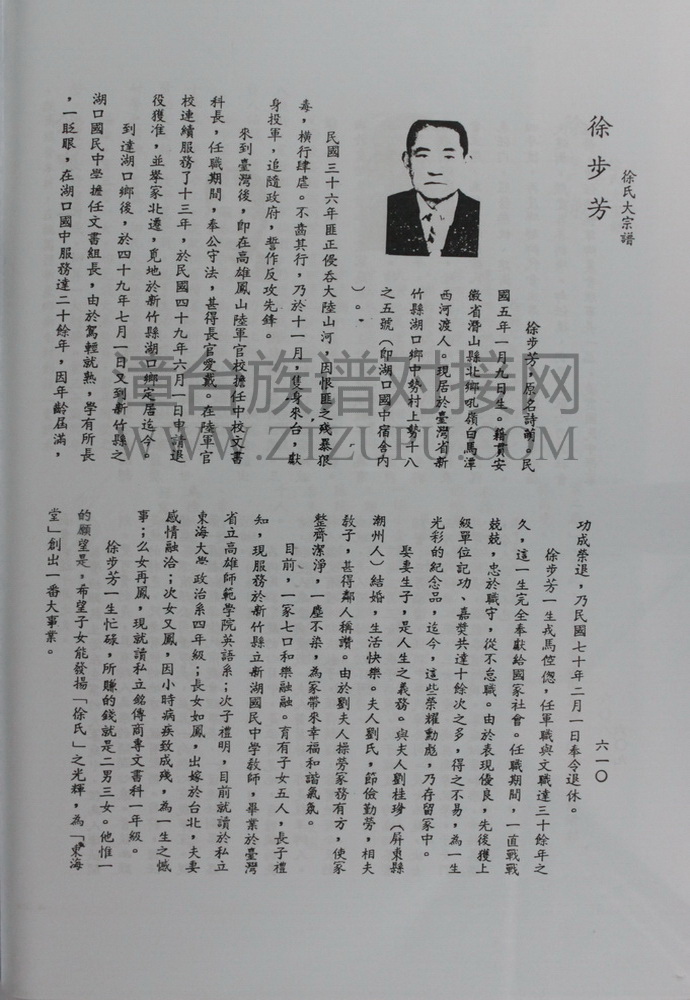 徐氏大宗譜
徐步芳
徐步芳，原名詩萌。民
國五年一月九日生。籍貫安
徽省潛山縣北鄉吼嶺白馬潭
西河渡人。現居於臺灣省新
竹縣湖口鄉中勢村上勢十八
之五號（即湖口國中宿舍內
）。
民國三十六年匪正侵吞大陸山河，因恨匪之殘暴狠
毒，橫行肆虐。不齒其行，乃於十一月，隻身來台，獻
身投軍，追隨政府，誓作反攻先鋒。
來到臺灣後，即在高雄鳳山陸軍官校擔任中校文書
科長，任職期間，奉公守法，甚得長官愛戴。在陸軍官
校連續服務了十三年，於民國四十九年六月一日申請退
役獲准，並舉家北遷，覓地於新竹縣湖口鄉定居迄今。
到達湖口鄉後，於四十九年七月一日又到新竹縣之
湖口國民中學擔任文書組長，由於駕輕就熟，學有所長
，一眨眼，在湖口國中服務達二十餘年，因年齡屆滿，
六一〇
功成榮退，乃民國七十年二月一日奉令退休。
徐步芳一生戎馬倥傯，任軍職與文職達三十餘年之
久，這一生完全奉獻給國家社會。任職期間，一直戰戰
兢兢，忠於職守，從不怠職。由於表現優良，先後獲上
級單位記功、嘉獎共達十餘次之多，得之不易，為一生
光彩的紀念品，迄今，這些榮耀勳彪，乃存留家中。
娶妻生子，是人生之義務。與夫人劉桂珍（屏東縣
潮州人）結婚，生活快樂。夫人劉氏，節儉勤勞，相夫
教子，甚得鄰人稱讚。由於劉夫人操勞家務有方，使家
整齊潔淨，一塵不染，為家帶來幸福和諧氣氛。
目前，一家七口和樂融融。育有子女五人，長子禮
知，現服務於新竹縣立新湖國民中學教師，畢業於臺灣
省立高雄師範學院英語系；次子禮明，目前就讀於私立
東海大學政治系四年級；長女如鳳，出嫁於台北，夫妻
感情融洽；次女又鳳，因小時病疾致成殘，為一生之憾
事；么女再鳳，現就讀私立銘傳商專文書科一年級。
徐步芳一生忙碌，所賺的錢就是二男三女。他惟一
的願望是，希望子女能發揚「徐氏」之光輝，為「東海
堂」創出一番大事業。
漳台族谱对接网
WWW.ZTZUPU.COM